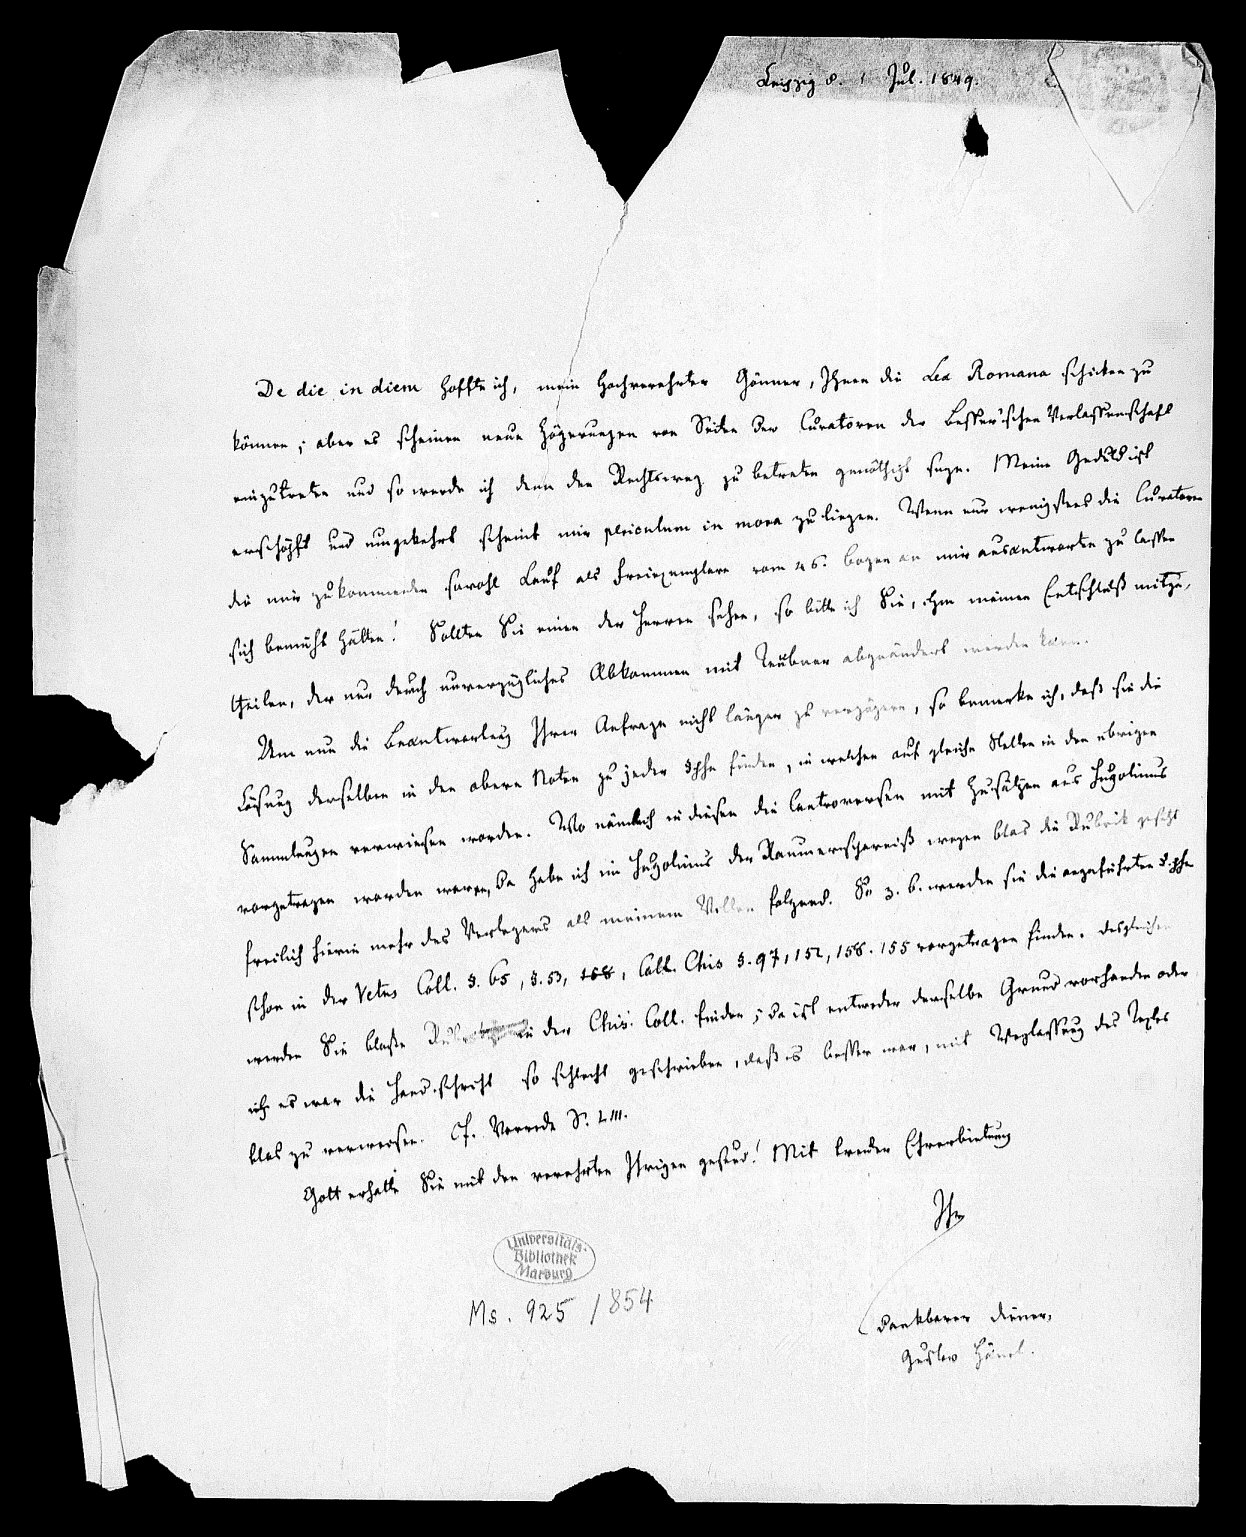 Leipzig d. 1 Jul. 1849.
De die in diem hoffte ich, mein hochverehrter Gönner, Ihnen die Lex Romana schicken zu
können; aber es scheinen neue Zögerungen von Seiten der Curatoren der Besser'schen Verlassenschaft
einzutreten und so werde ich denn den Rechtsweg zu betreten genöthigt seyn. Meine Geduld ist
erschöpft und umgekehrt scheint mir periculum in mora zu liegen. Wenn nur wenigstens die Curatoren
die mir zukommenden sowohl Kauf als Freiexemplare vom 46. Bogen an mir ausantworten zu lassen
sich bemüht hätten! Sollten Sie einen der Herren sehen, so bitte ich Sie, ihm meinen Entschluß mitzu-
theilen, der nur durch unverzügliches Abkommen mit Teubner abgeändert werden kann.
Um nun die Beantwortung Ihrer Anfrage nicht länger zu verzögern, so bemerke ich, daß sie die
Lösung derselben in den obern Noten zu jeder §phe finden, in welchen auf gleiche Stellen in den übrigen
Sammlungen verwiesen worden. Wo nämlich in diesen die Controversen mit Zusätzen aus Hugolinus
vorgetragen worden waren, da habe ich im Hugolinus der Raumersparniß wegen blos die Rubrik gesetzt
freilich hierin mehr des Verlegers als meinem Willen folgend. So z. B. werden sie die angeführten §.phen
schon in der Vetus Coll. §. 65, §. 53, Coll. Chis §. 97, 152, 158. 155 vorgetragen finden. Desgleichen
werden Sie bloße in der Chis. Coll. finden; da ist entweder derselbe Grund vorhanden oder
es war die Handschrift so schlecht geschrieben, daß es besser war, mit Weglassung des Textes
blos zu verweisen. Cf. Vorrede S. LIII.
Gott erhalte Sie mit den verehrten Ihrigen gesund! Mit treuer Ehrerbietung
Ihr
dankbarer Diener,
Gustav Hänel.
Universitäts-
Bibliothek
Marburg
Ms. 925 / 854